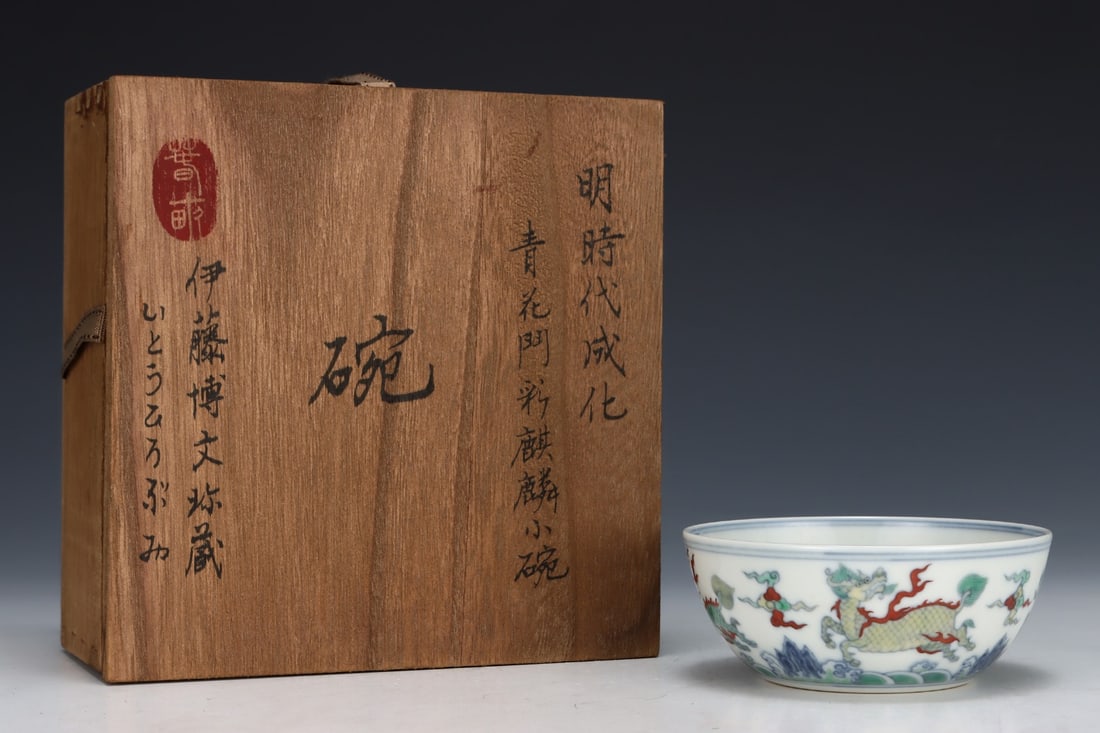 明時代成化
青花門彩麒麟小碗
碗
伊藤博文珎藏
いとうひろぶみ
春畝